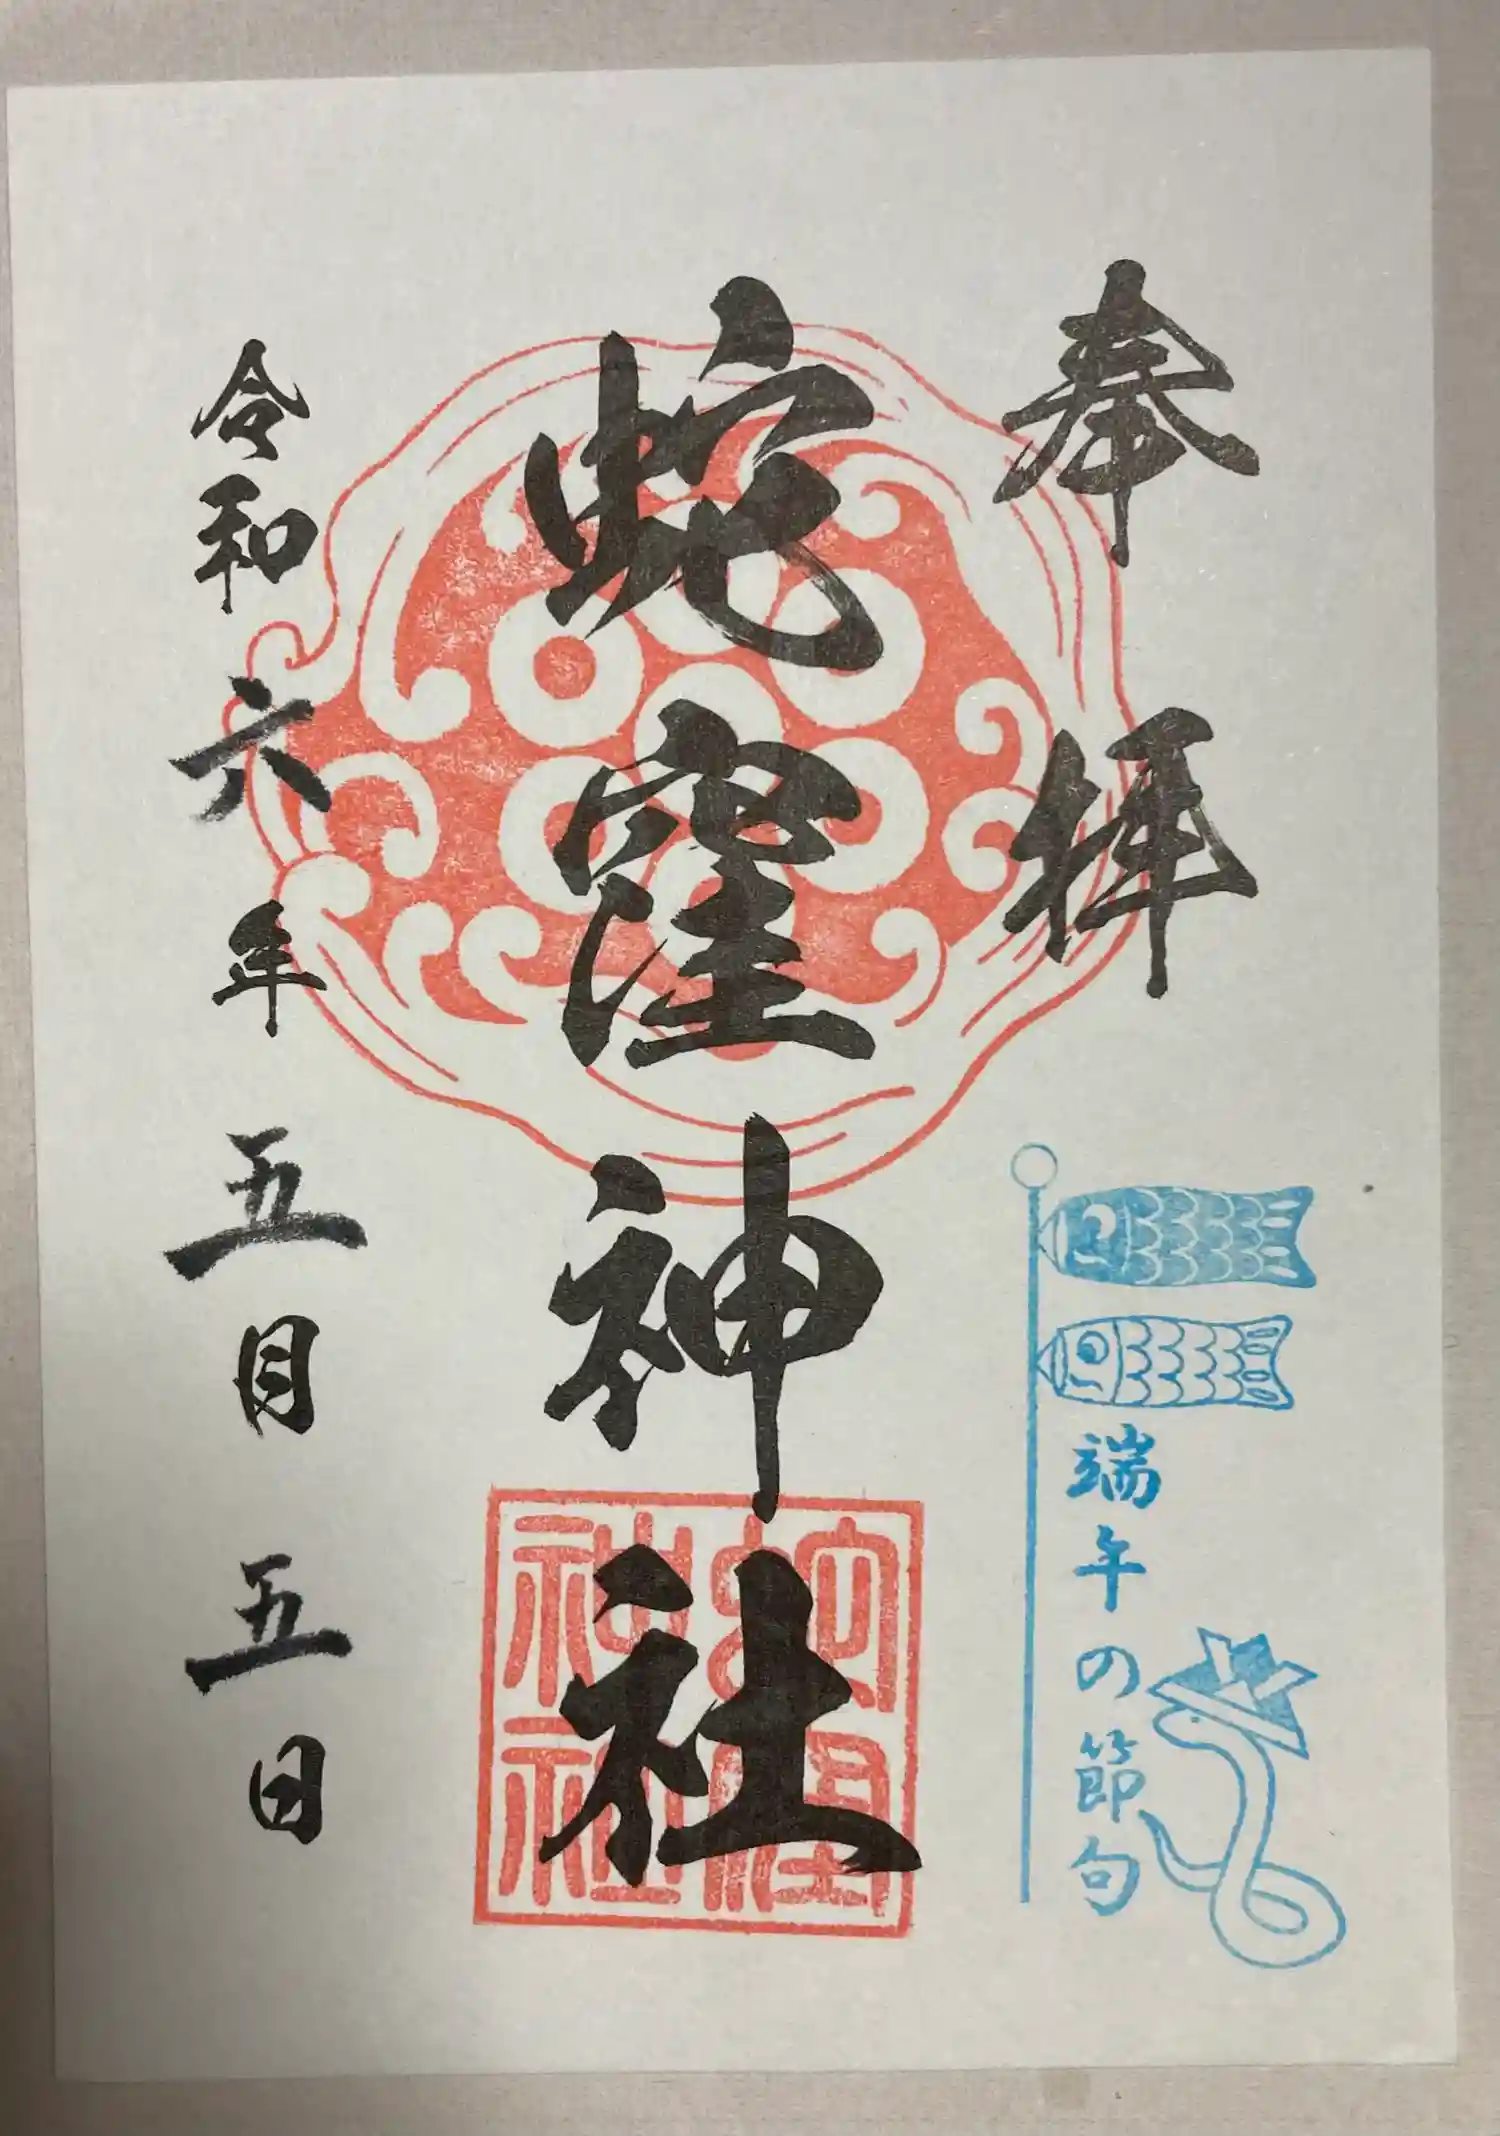 奉拝
端午の節句
蛇窪神社
蛇窪
神社
令和六年五月五日